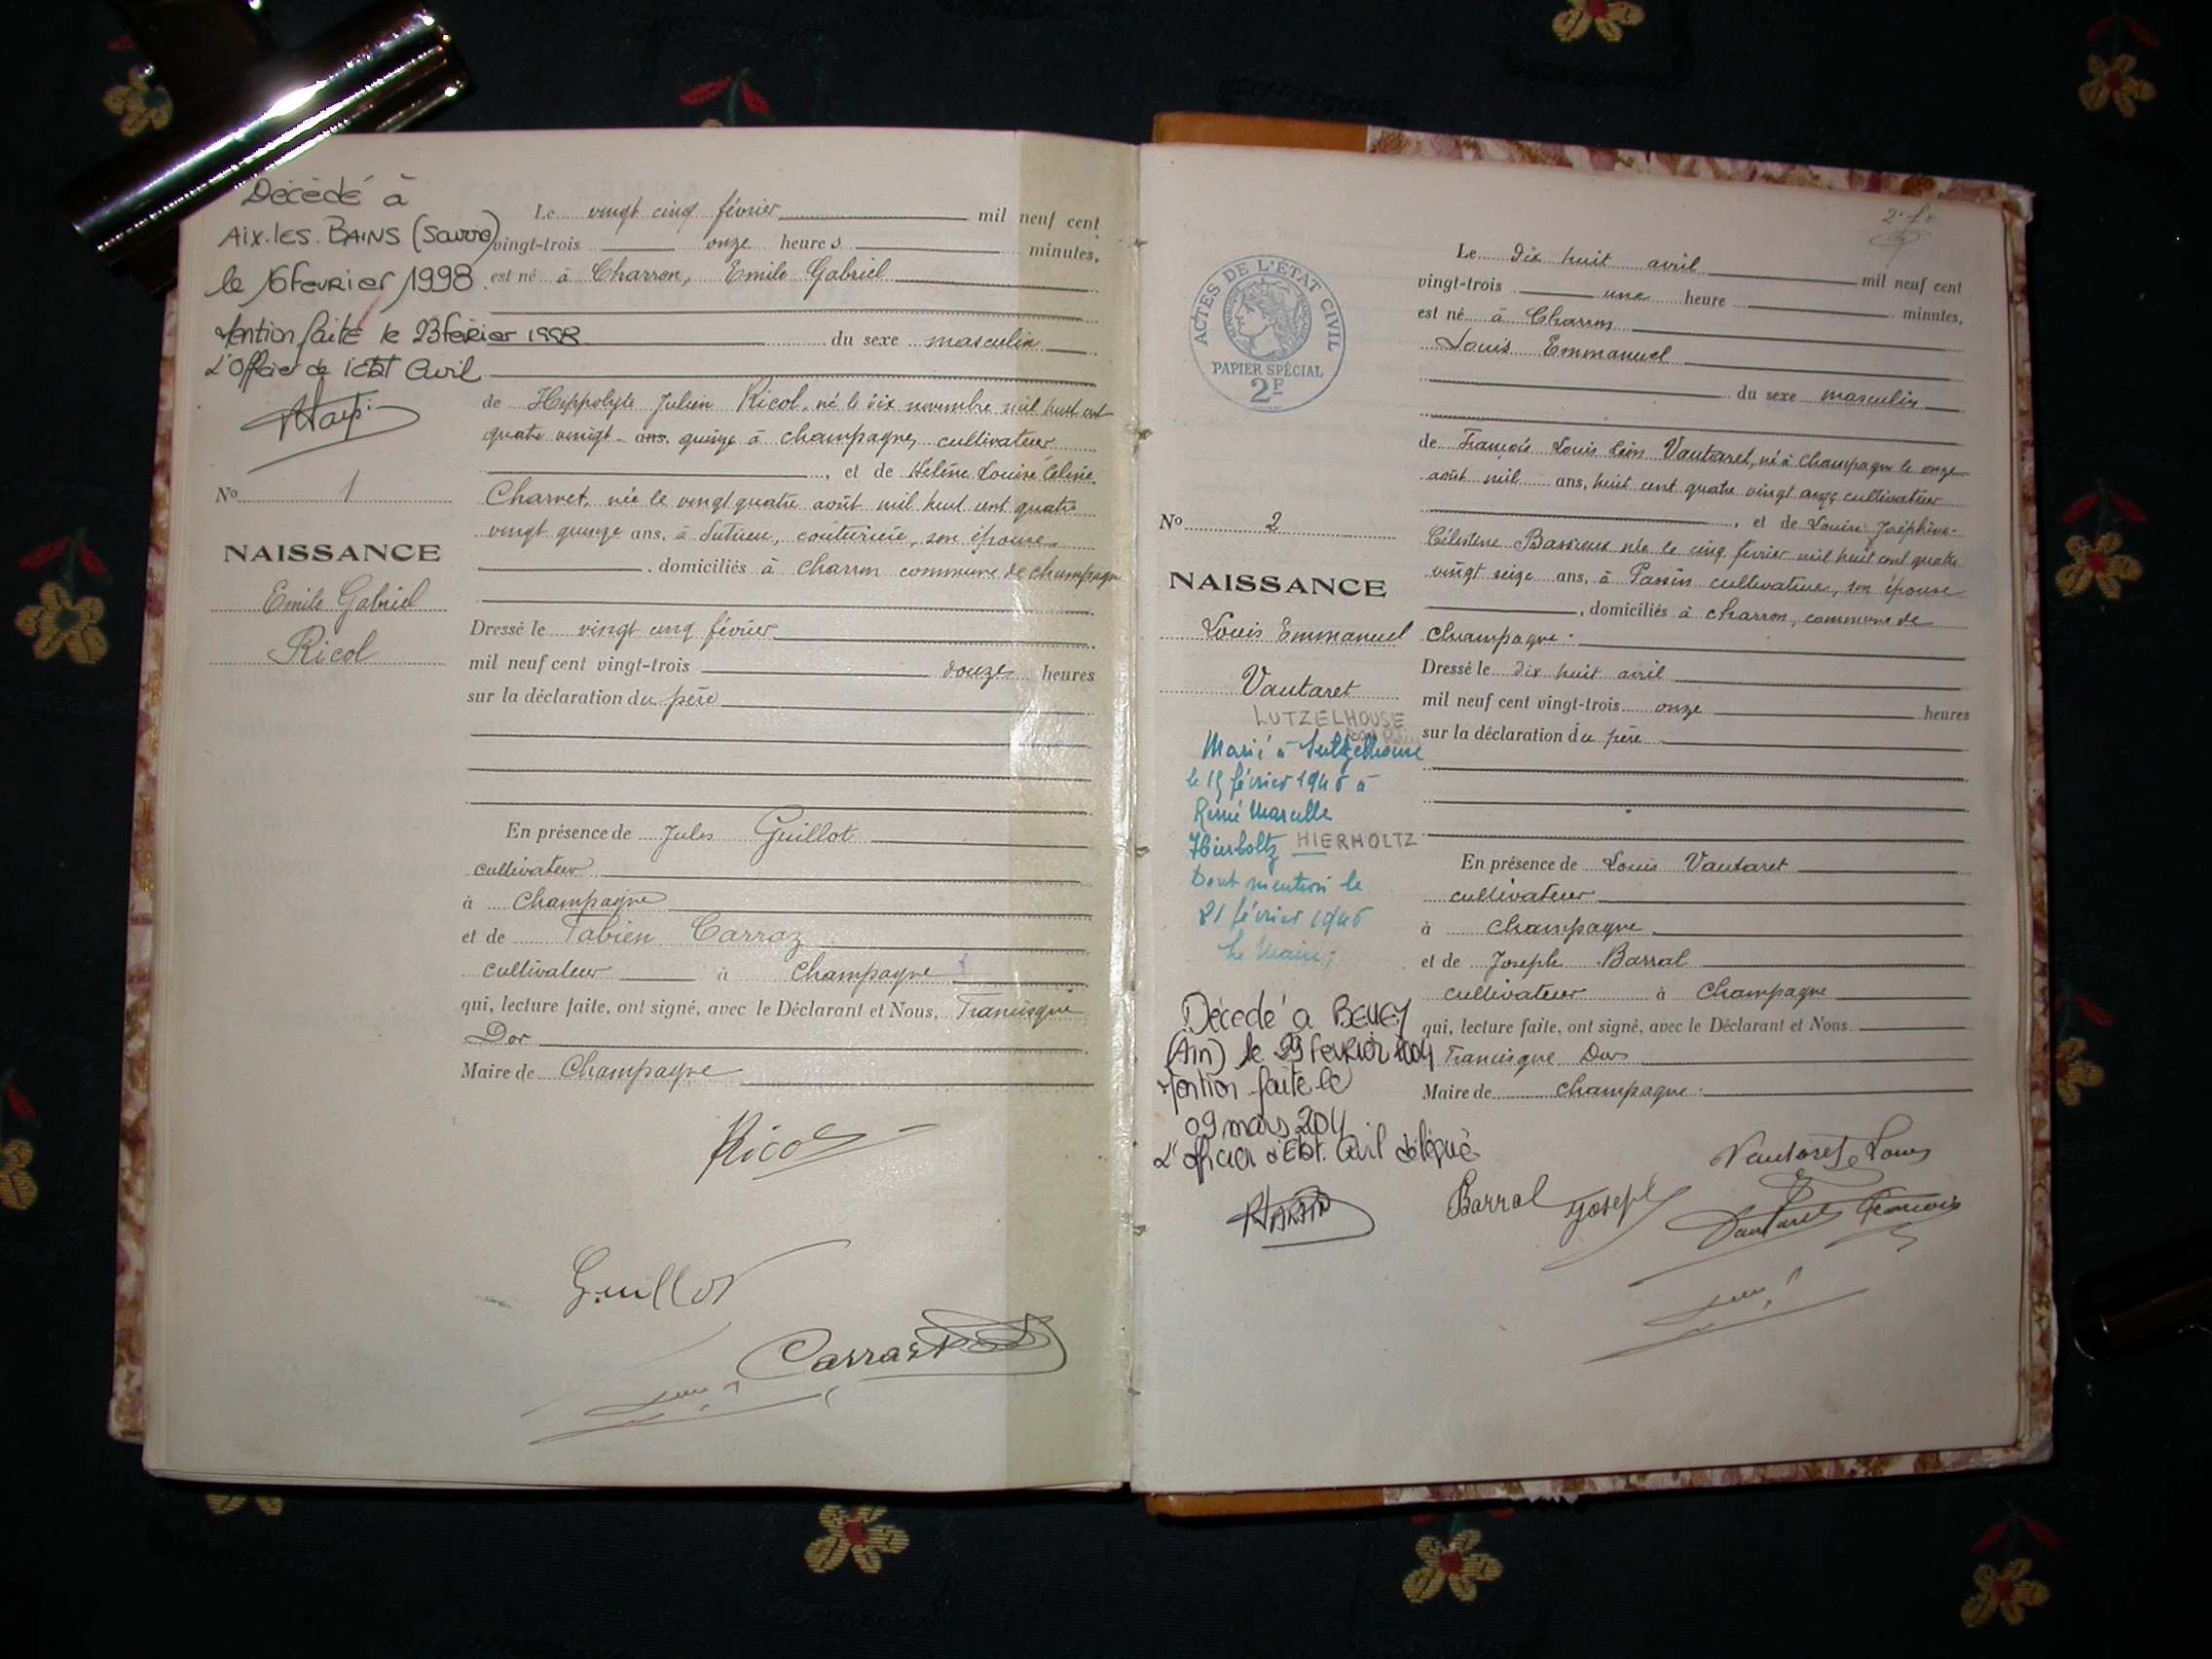 Décédé à
Aix.les.BAINS (Savoie)
le 16 FEVRIER 1998
Mention faite le 23 février 1998
L'Officier de l'Etat Civil
No 1
NAISSANCE
Emile Gabriel
Ricol
Le vingt cinq février mil neuf cent
vingt-trois onze heures minutes,
est né à Charron, Emile Gabriel
du sexe masculin
de Hippolyte Julien Ricol, né le dix novembre mil huit cent
quatre vingt ans, quinze à Champagne, cultivateur
, et de Hélène Louise Céline
Charvet, née le vingt quatre août mil huit cent quatre
vingt quinze ans, à Sutrieu, couturière, son épouse
, domiciliés à Charron commune de Champagne
Dressé le vingt cinq février
mil neuf cent vingt-trois douze heures
sur la déclaration du père
En présence de Jules Guillot
cultivateur
à Champagne
et de Fabien Carraz
cultivateur à Champagne
qui, lecture faite, ont signé, avec le Déclarant et Nous, Francisque
Dor
Maire de Champagne
Ricol
Guillot
Carraz
ACTES DE L'ÉTAT CIVIL
PAPIER SPÉCIAL
2F
No 2
NAISSANCE
Louis Emmanuel
Vautaret
LUTZELHOUSE
Marié à Lutzelhouse
le 15 février 1946 à
Marcelle
Hierholtz HIERHOLTZ
Dont mention le
21 février 1946
Le Maire,
Décédé à BELLEY
(Ain) le 29 FEVRIER 2004
Mention faite le
09 mars 2004
L'officier d'Etat Civil délégué
Le dix huit avril mil neuf cent
vingt-trois une heure minutes,
est né à Charron
Louis Emmanuel
du sexe masculin
de François Louis Léon Vautaret, né à Champagne le onze
août mil ans, huit cent quatre vingt onze cultivateur
, et de Louise Joséphine
Célestine née le cinq février mil huit cent quatre
vingt seize ans, à Passin cultivatrice, son épouse
, domiciliés à Charron, commune de
Champagne.
Dressé le dix huit avril
mil neuf cent vingt-trois onze heures
sur la déclaration du père
En présence de Louis Vautaret
cultivateur
à Champagne
et de Joseph Barral
cultivateur à Champagne
qui, lecture faite, ont signé, avec le Déclarant et Nous
Francisque Dor
Maire de Champagne.
Vautaret Louis
Barral Joseph
Vautaret François